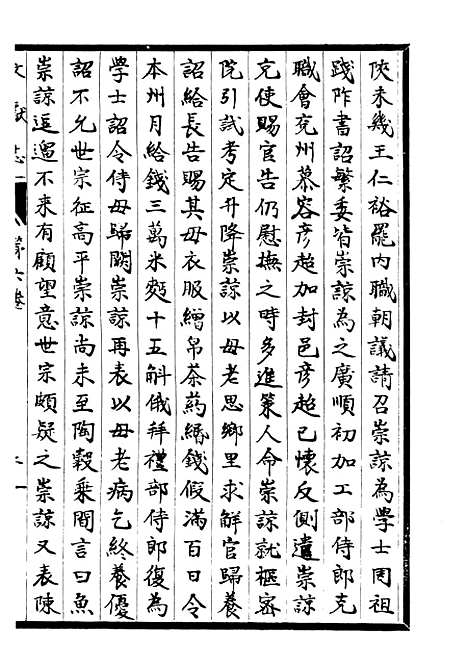 陝未幾王仁裕罷内職朝議請召崇諒為學士周祖
踐阼書詔繁委皆崇諒為之廣順初加工部侍郎充
職會兗州慕容彦超加封邑彦超已懷反側遣崇諒
充使賜官告仍慰撫之時多進策人命崇諒就樞密
院引試考定升降崇諒以母老思鄉里求解官歸養
詔給長告賜其母衣服繒帛茶藥緡錢假滿百日令
本州月給錢三萬米麫十五斛俄拜禮部侍郎復為
學士詔令侍母歸闕崇諒再表以母老病乞終養優
詔不允世宗征高平崇諒尚未至陶穀乘間言曰魚
崇諒逗遛不來有顧望意世宗頗疑之崇諒又表陳
文獻志 第六卷